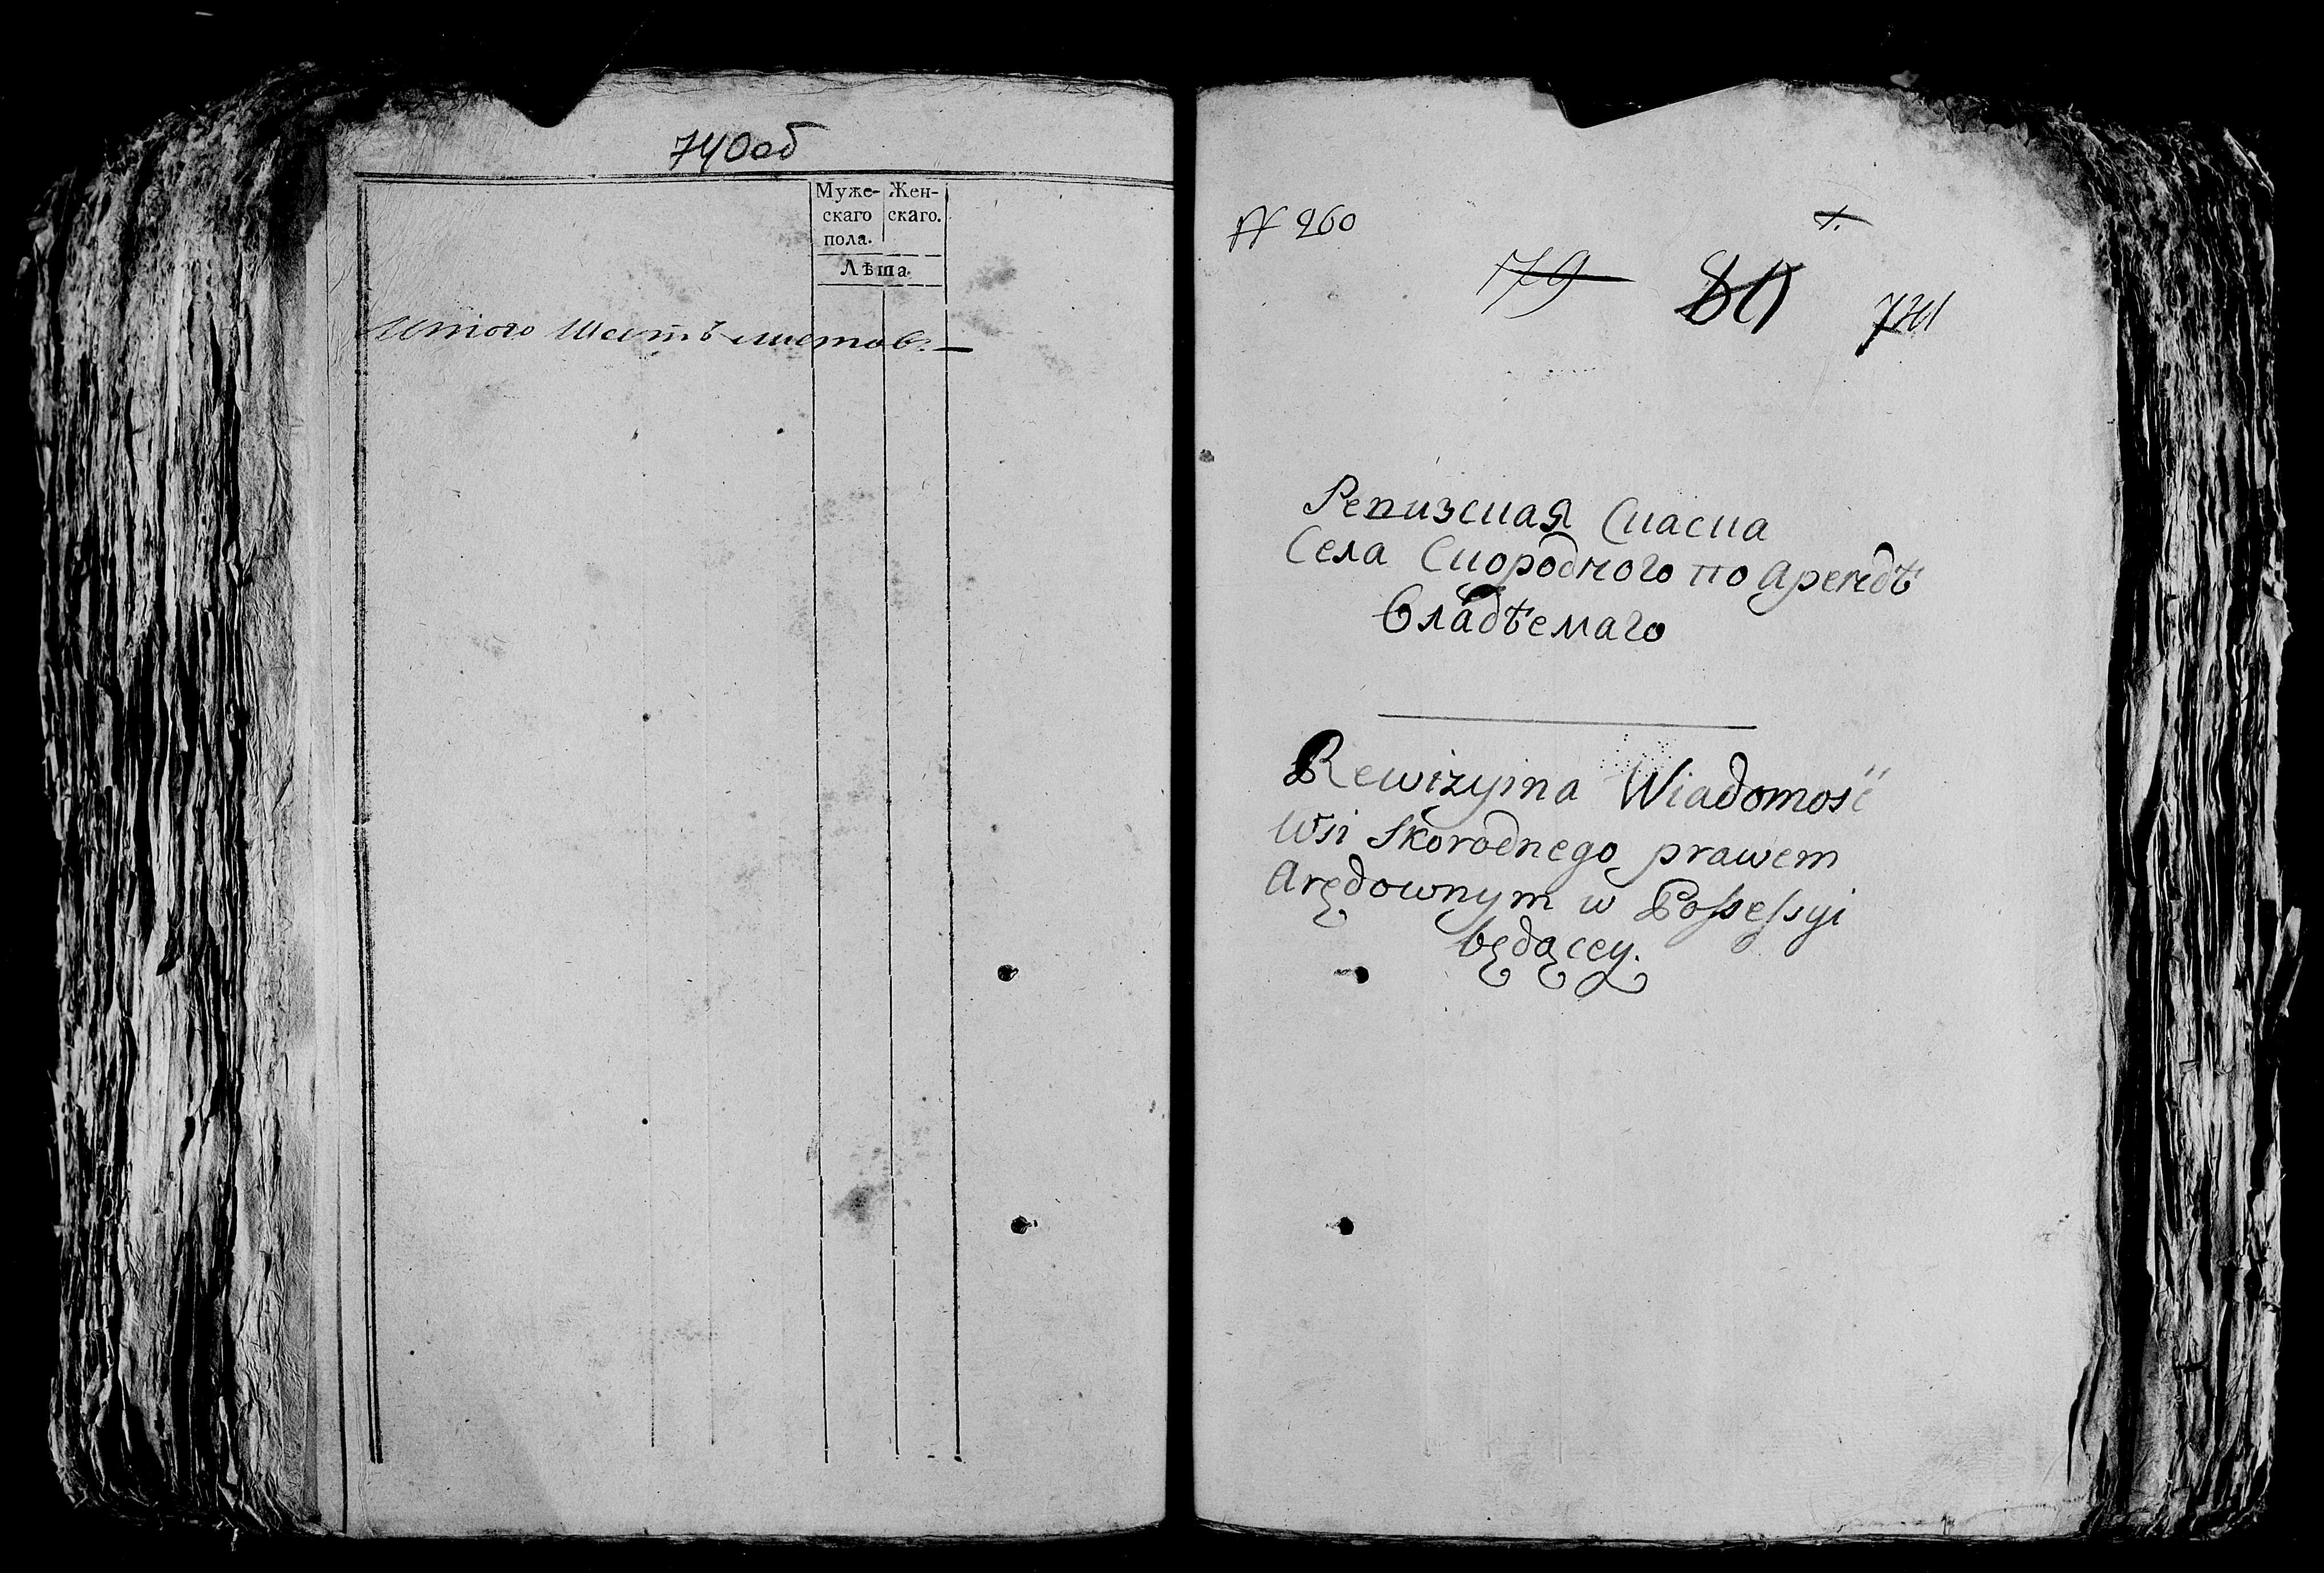 740об
Муже- Жен-
скаго скаго.
пола.
Лѣта.
Итого шесть листов.
№ 260
1.
179 80 741
Ревизская Скаска
Села Скородного по Арендѣ
Владѣемаго
Rewizyina Wiadomość
Wsi Skorodnego prawem
Arędownym w Possessyi
będącey.